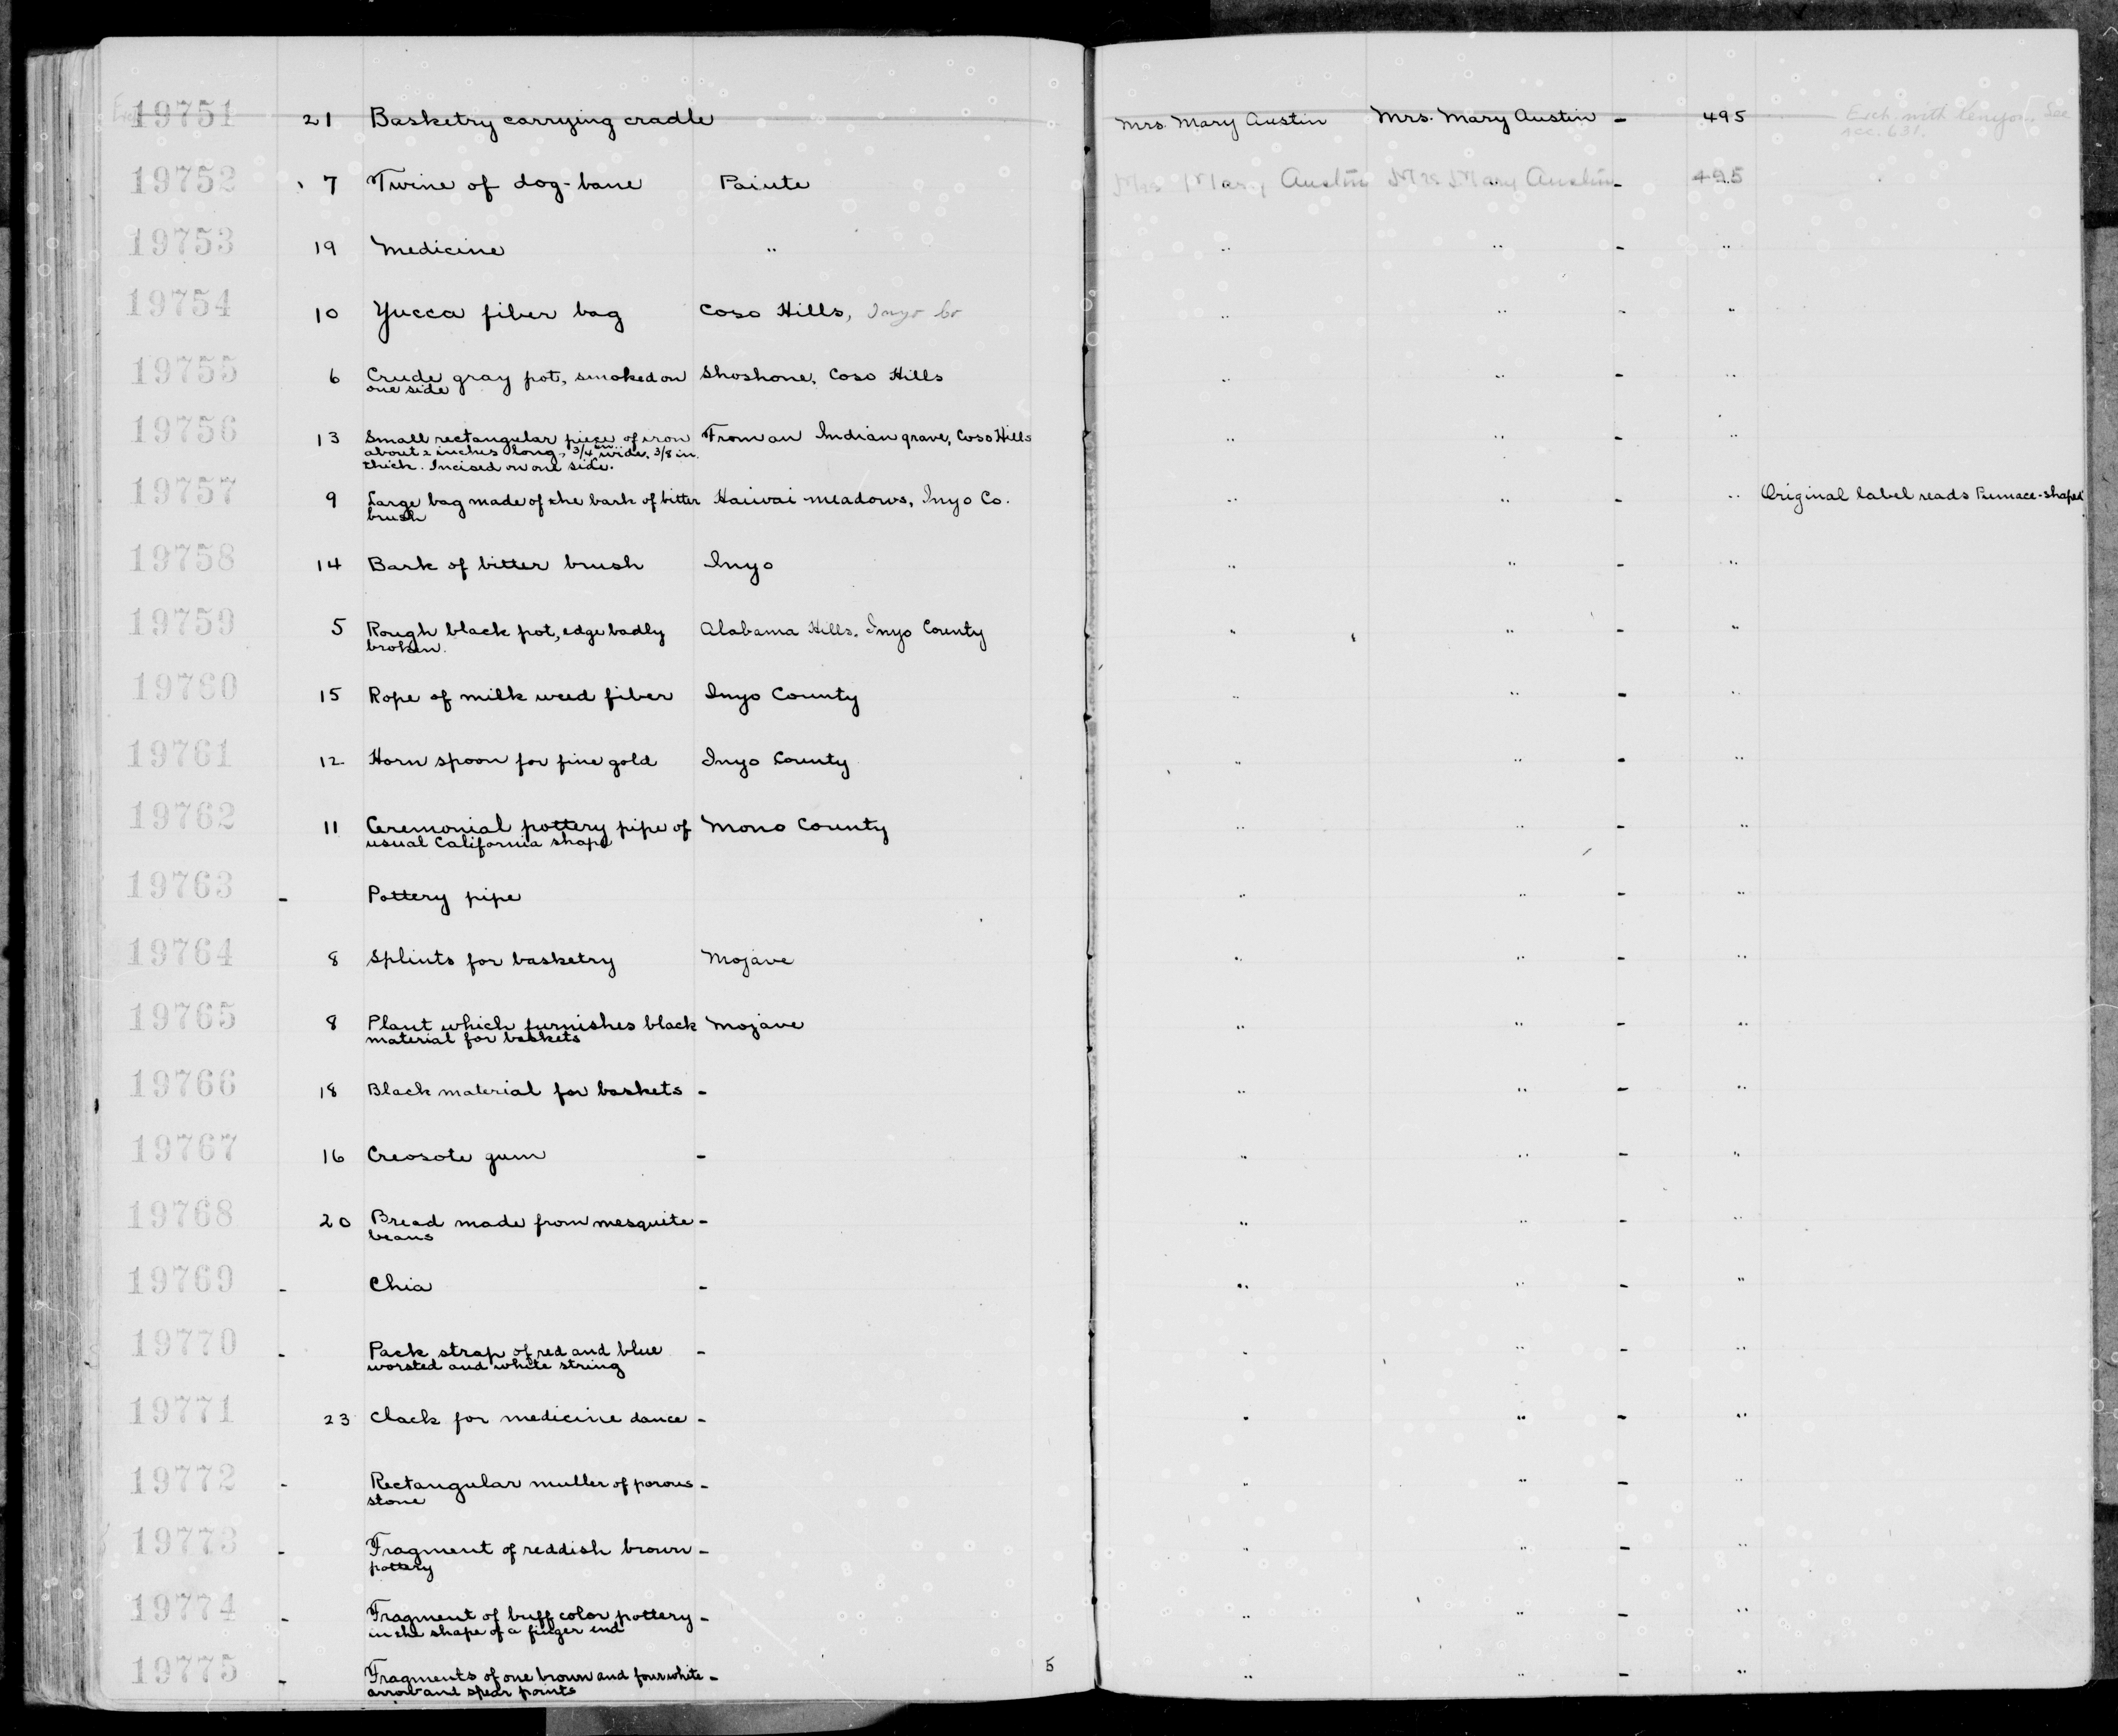 19751 21 Basketry carrying cradle Mrs. Mary Austin Mrs. Mary Austin - 495 Exch. with See
acc. 631.
19752 7 Twine of dog-bane Paiute Mrs Mary Austin Mrs Mary Austin - 495
19753 19 Medicine " " " - "
19754 10 Yucca fiber bag Coso Hills, Inyo Co " " - "
19755 6 Crude gray pot, smoked on Shoshone, Coso Hills " " - "
one side
19756 13 Small rectangular piece of iron From an Indian grave, Coso Hills " " - "
about 2 inches long, 3/4 in. wide, 3/8 in.
thick. Incised on one side.
19757 9 Large bag made of the bark of bitter Haiwai meadows, Inyo Co. " " - " Original label reads Furnace-shaped
brush
19758 14 Bark of bitter brush Inyo " " - "
19759 5 Rough black pot, edge badly Alabama Hills, Inyo County " " - "
broken.
19760 15 Rope of milk weed fiber Inyo County " " - "
19761 12 Horn spoon for fine gold Inyo County " " - "
19762 11 Ceremonial pottery pipe of Mono County " " - "
usual California shape
19763 - Pottery pipe " " - "
19764 8 Splints for basketry Mojave " " - "
19765 8 Plant which furnishes black Mojave " " - "
material for baskets
19766 18 Black material for baskets - " " - "
19767 16 Creosote gum - " " - "
19768 20 Bread made from mesquite - " " - "
beans
19769 - Chia - " " - "
19770 - Pack strap of red and blue - " " - "
worsted and white string
19771 23 Clack for medicine dance - " " - "
19772 - Rectangular muller of porous - " " - "
stone
19773 - Fragment of reddish brown - " " - "
pottery
19774 - Fragment of buff color pottery - " " - "
in the shape of a finger end
19775 - Fragments of one brown and four white - 5 " " - "
arrow and spear points